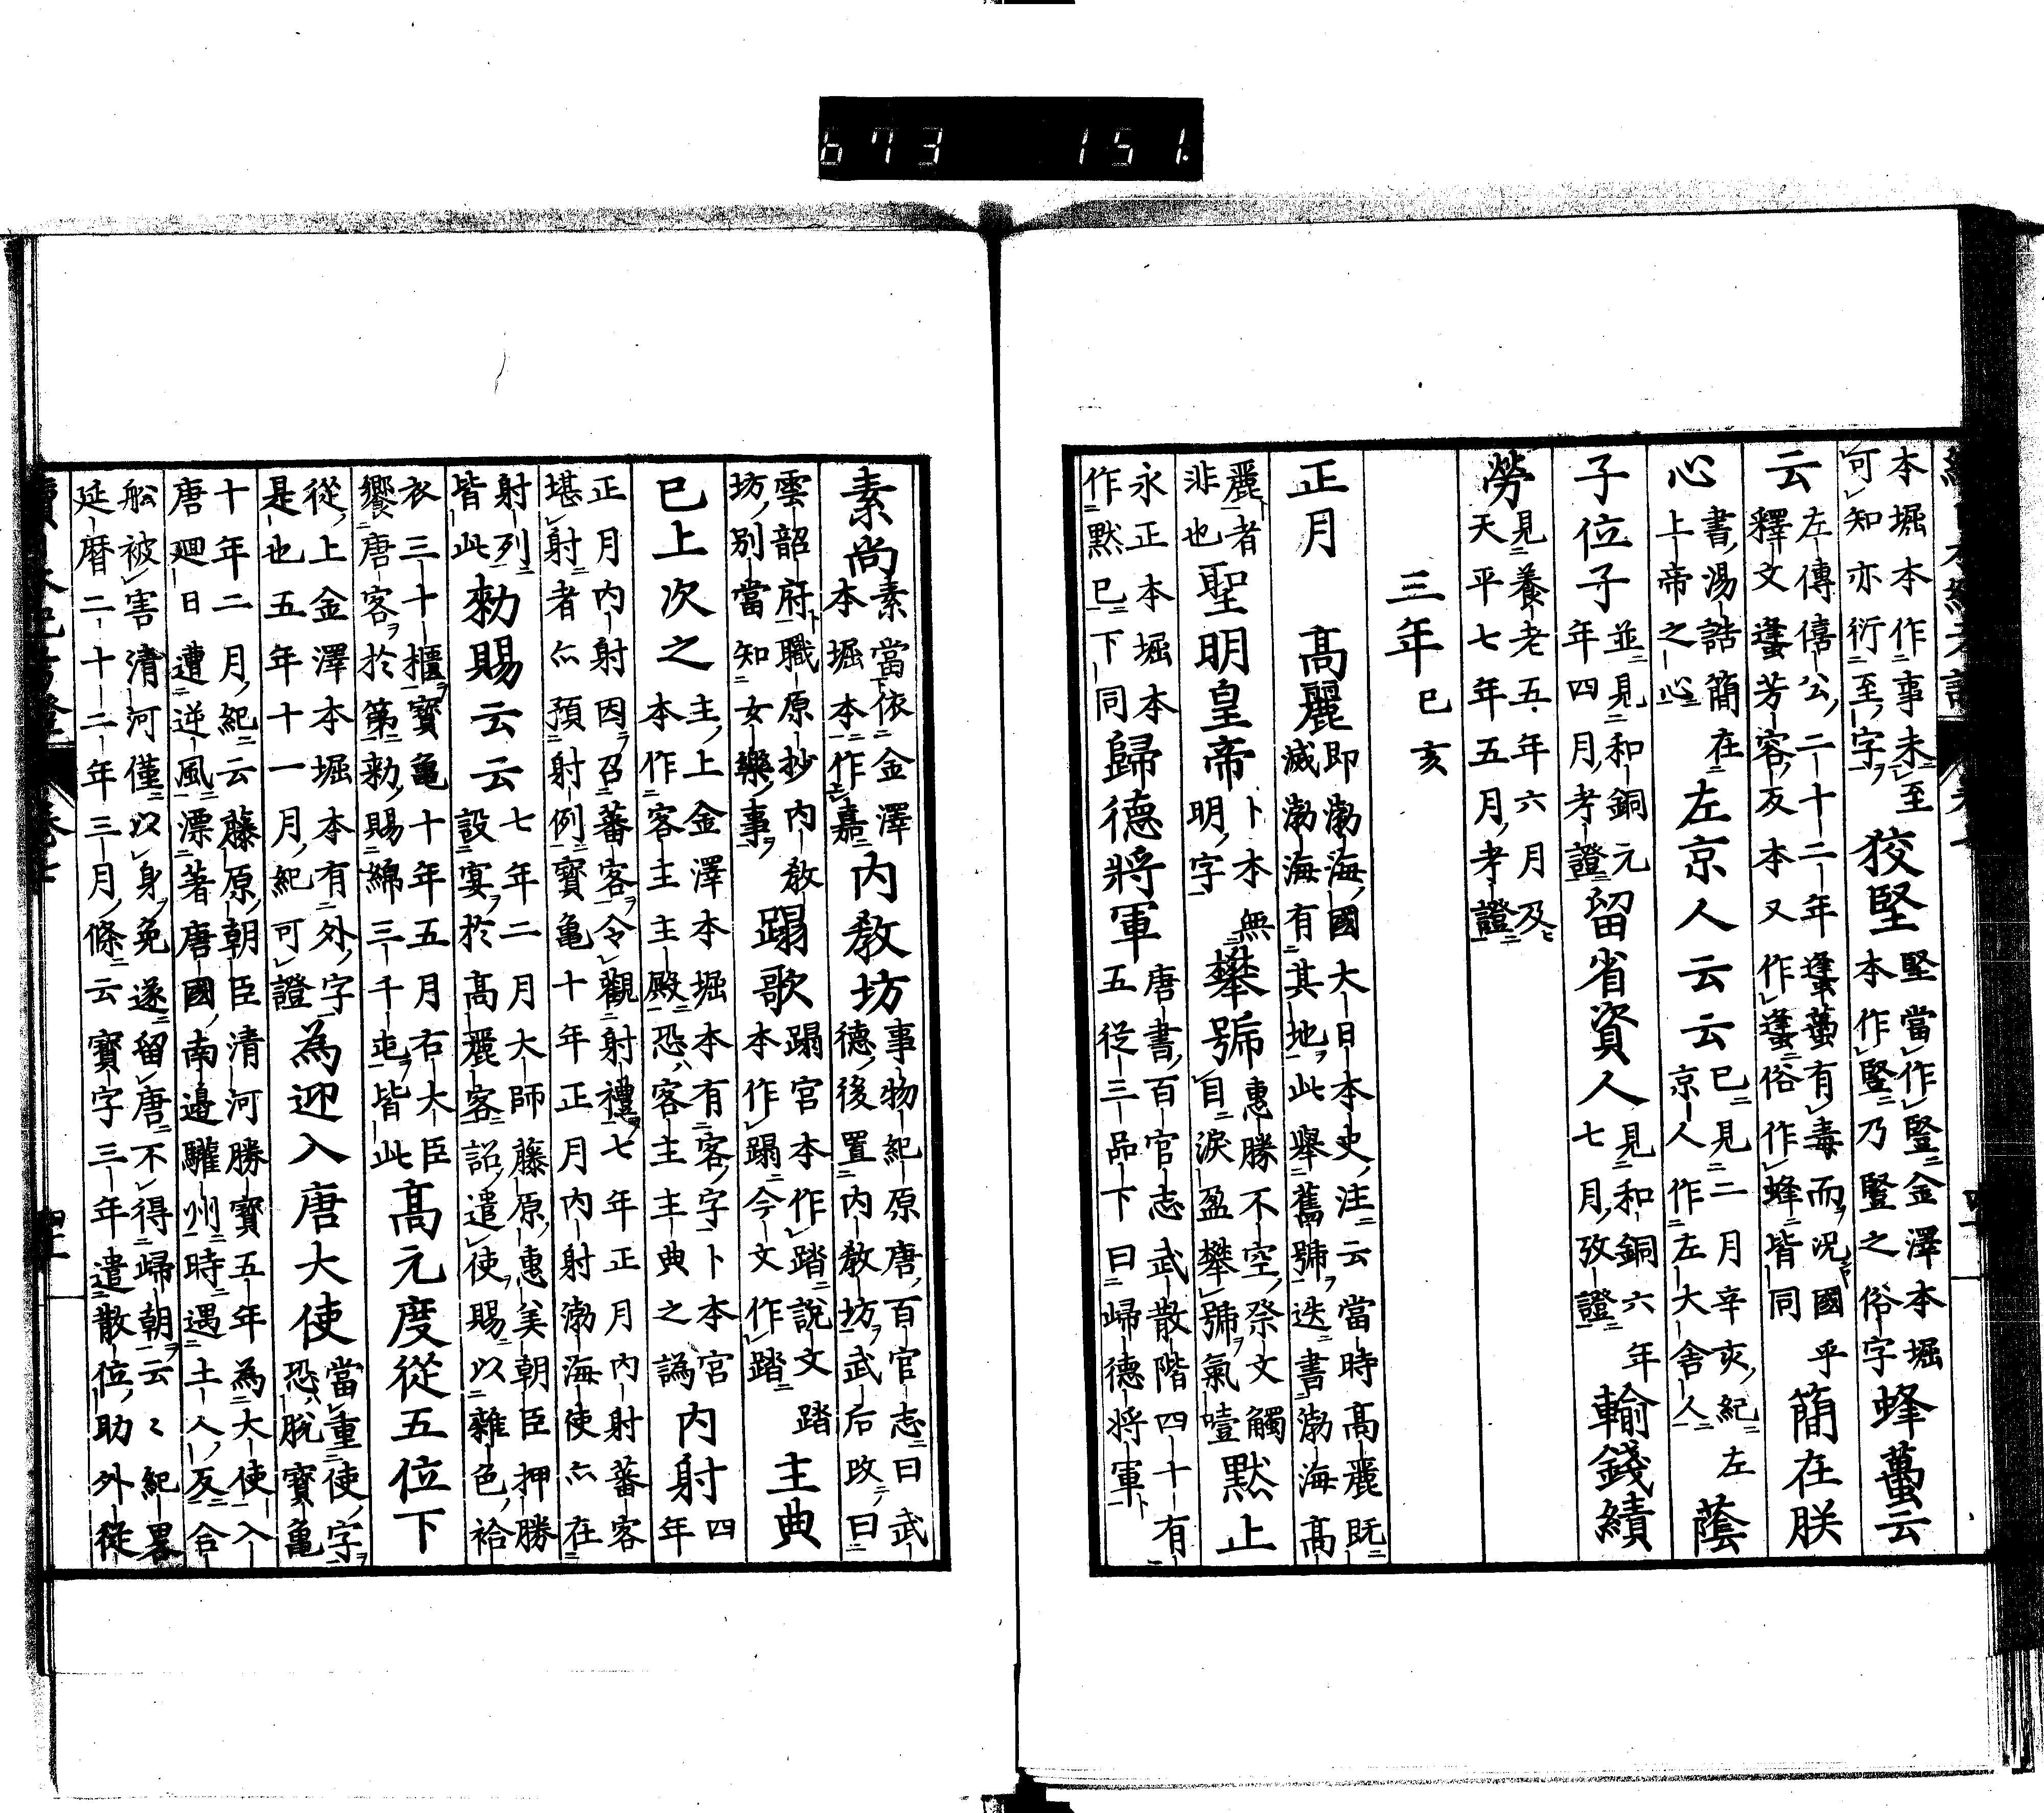 673 151.
本堀本作事未至
可知亦衍至字
狡堅
堅當作豎金澤本堀
本作豎乃豎之俗字
蜂蠆云
云
左傳僖公二十二年
釋文蠭芳容反本又
蠭蠆有毒而況國乎
作蠭俗作蜂皆同
簡在朕
心
書湯誥簡在
上帝之心
左京人云云
已見二月辛亥紀左
京人作左大舍人
蔭
子位子
並見和銅元
年四月考證
留省資人
見和銅六年
七月攷證
輸錢續
勞
見養老五年六月及
天平七年五月考證
三年己亥
正月
高麗
即渤海國大日本史注云當時高麗既
滅渤海有其地此舉舊號迭書渤海高
麗者
非也
聖明皇帝
卜本無
明字
攀號
惠勝不空祭文觸
目淚盈攀號氣噎
默止
永正本堀本
作默已下同
歸德將軍
唐書百官志武散階四十有
五從三品下曰歸德将軍
素尚
素當依金澤
本堀本作嘉
內敎坊
事物紀原唐百官志曰武
德後置內敎坊武后改曰
雲韶府職原抄內敎
坊別當知女樂事
蹋歌
蹋宮本作踏說文踏
本作蹋今文作踏
主典
已上次之
主上金澤本堀本有客字卜本宮
本作客主主殿恐客主主典之譌
內射
四
年
正月內射因召蕃客令觀射禮七年正月內射蕃客
堪射者亦預射例寶亀十年正月內射渤海使亦在
射列
皆此
勑賜云云
七年二月大師藤原惠美朝臣押勝
設宴於高麗客詔遣使賜以雜色袷
衣三十櫃寶亀十年五月右大臣
饗唐客於第勑賜綿三千屯皆此
高元度從五位下
從上金澤本堀本有外字
是也五年十一月紀可證
為迎入唐大使
當重使字
恐脫寶亀
十年二月紀云藤原朝臣清河勝寶五年為大使入
唐廻日遭逆風漂著唐國南邊驩州時遇土人反合
舩被害清河僅以身免遂留唐不得歸朝云〻紀畧
延暦二十二年三月條云寶字三年遣散位助外從